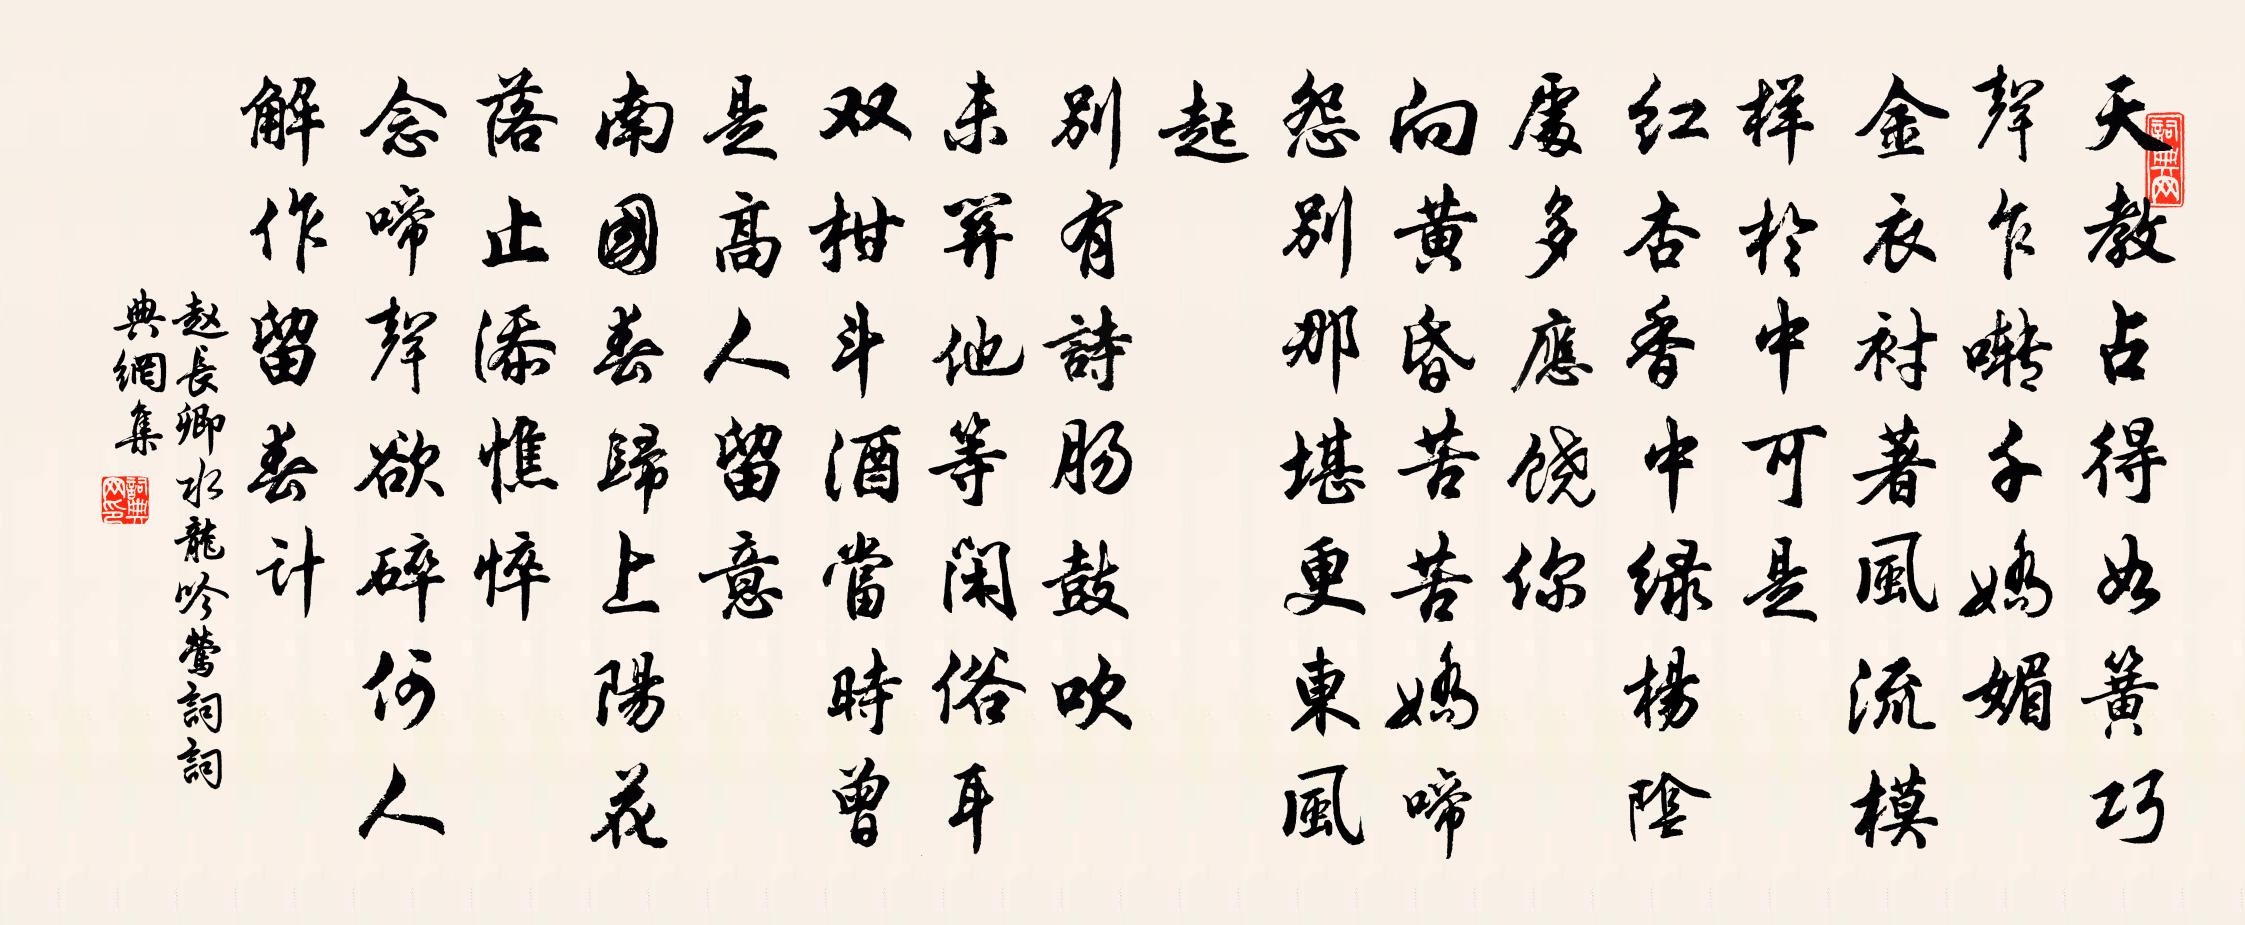 詞典网
天教占得如簧巧
聲乍囀千嬌媚
金衣衬著風流模
样於中可是
红杏香中绿楊陰
處多應饶你
向黄昏苦苦嬌啼
怨别那堪更東風
起
别有詩肠鼓吹
未關他等闲俗耳
双柑斗酒當時曾
是高人留意
南國春歸上陽花
落止添憔悴
念啼聲欲碎何人
解作留春计
赵長卿水龍吟鶯詞詞
典網集
詞典网印